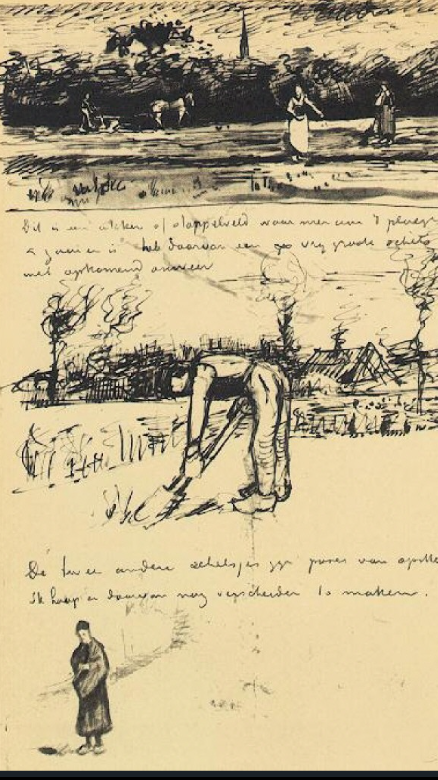 Dit is een akker of stoppelveld waar men aan 't ploegen
& zaaien is heb daarvan een vrij groote schets
met opkomend onweer
De twee andere schetsjes zijn poses van
Ik hoop er daarvan nog verscheiden te maken.